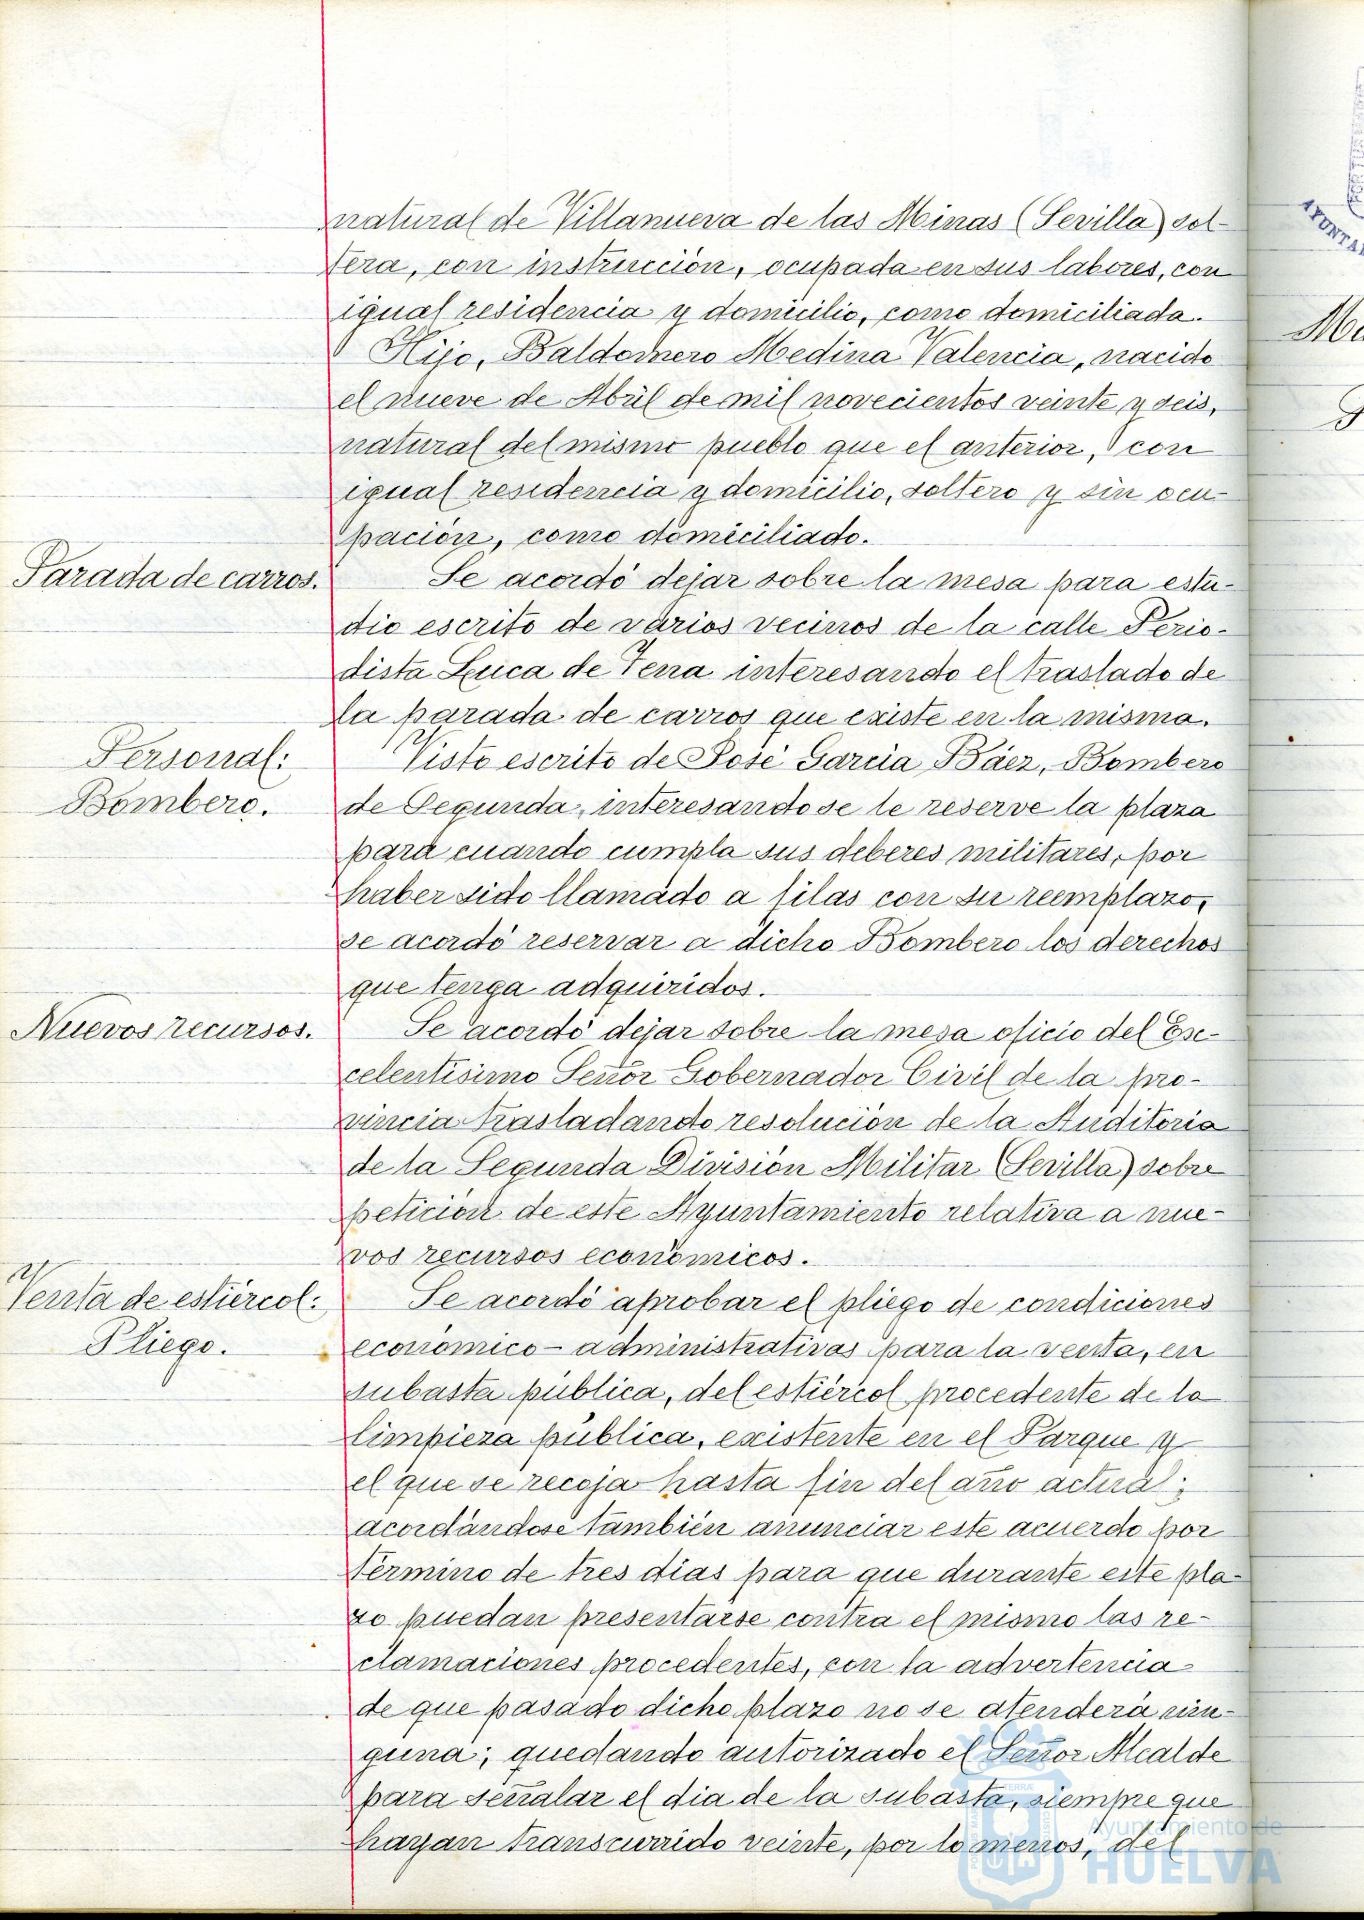 natural de Villanueva de las Minas (Sevilla) sol-
tera, con instrucción, ocupada en sus labores, con
igual residencia y domicilio, como domiciliada.
Hijo, Baldomero Medina Valencia, nacido
el nueve de Abril de mil novecientos veinte y seis,
natural del mismo pueblo que el anterior, con
igual residencia y domicilio, soltero y sin ocu-
pación, como domiciliado.
Parada de carros.
Se acordó dejar sobre la mesa para estu-
dio escrito de varios vecinos de la calle Perio-
dista Luca de Tena interesando el traslado de
la parada de carros que existe en la misma.
Personal:
Bombero.
Visto escrito de José García Báez, Bombero
de Segunda, interesando se le reserve la plaza
para cuando cumpla sus deberes militares, por
haber sido llamado a filas con su reemplazo,
se acordó reservar a dicho Bombero los derechos
que tenga adquiridos.
Nuevos recursos.
Se acordó dejar sobre la mesa oficio del Exc-
celentísimo Señor Gobernador Civil de la pro-
vincia trasladando resolución de la Auditoria
de la Segunda División Militar (Sevilla) sobre
petición de este Ayuntamiento relativa a nue-
vos recursos económicos.
Venta de estiércol:
Pliego.
Se acordó aprobar el pliego de condiciones
económico-administrativas para la venta, en
subasta pública, del estiércol procedente de la
limpieza pública, existente en el Parque y
el que se recoja hasta fin del año actual;
acordándose también anunciar este acuerdo por
término de tres dias para que durante este pla-
zo puedan presentarse contra el mismo las re-
clamaciones procedentes, con la advertencia
de que pasado dicho plazo no se atenderá nin-
guna; quedando autorizado el Señor Alcalde
para señalar el dia de la subasta, siempre que
hayan transcurrido veinte, por lo menos, del
Ayuntamiento de
HUELVA